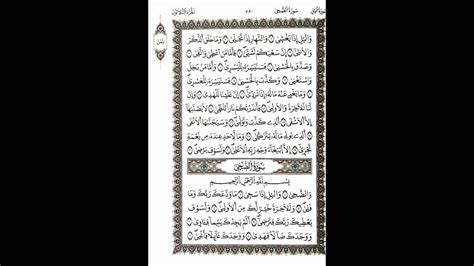 سُورَةُ الضُّحَى
وَالَّيْلِ إِذَا يَغْشَىٰ وَالنَّهَارِ إِذَا تَجَلَّىٰ وَمَا خَلَقَ الذَّكَرَ
وَالْأُنثَىٰ إِنَّ سَعْيَكُمْ لَشَتَّىٰ فَأَمَّا مَنْ أَعْطَىٰ وَاتَّقَىٰ
وَصَدَّقَ بِالْحُسْنَىٰ فَسَنُيَسِّرُهُ لِلْيُسْرَىٰ وَأَمَّا مَنْ بَخِلَ
وَاسْتَغْنَىٰ وَكَذَّبَ بِالْحُسْنَىٰ فَسَنُيَسِّرُهُ لِلْعُسْرَىٰ
وَمَا يُغْنِي عَنْهُ مَالُهُ إِذَا تَرَدَّىٰ إِنَّ عَلَيْنَا لَلْهُدَىٰ وَإِنَّ
لَنَا لَلْآخِرَةَ وَالْأُولَىٰ فَأَنذَرْتُكُمْ نَارًا تَلَظَّىٰ لَا يَصْلَاهَا
إِلَّا الْأَشْقَى الَّذِي كَذَّبَ وَتَوَلَّىٰ وَسَيُجَنَّبُهَا الْأَتْقَى
الَّذِي يُوتِي مَالَهُ يَتَزَكَّىٰ وَمَا لِأَحَدٍ عِندَهُ مِن نِّعْمَةٍ
تُجْزَىٰ إِلَّا ابْتِغَاءَ وَجْهِ رَبِّهِ الْأَعْلَىٰ وَلَسَوْفَ يَرْضَىٰ
سُورَةُ الضُّحَى
بِسْمِ اللَّهِ الرَّحْمَٰنِ الرَّحِيمِ
وَالضُّحَىٰ وَالَّيْلِ إِذَا سَجَىٰ مَا وَدَّعَكَ رَبُّكَ وَمَا
قَلَىٰ وَلَلْآخِرَةُ خَيْرٌ لَّكَ مِنَ الْأُولَىٰ وَلَسَوْفَ
يُعْطِيكَ رَبُّكَ فَتَرْضَىٰ أَلَمْ يَجِدْكَ يَتِيمًا فَآوَىٰ
وَوَجَدَكَ ضَالًّا فَهَدَىٰ وَوَجَدَكَ عَائِلًا فَأَغْنَىٰ